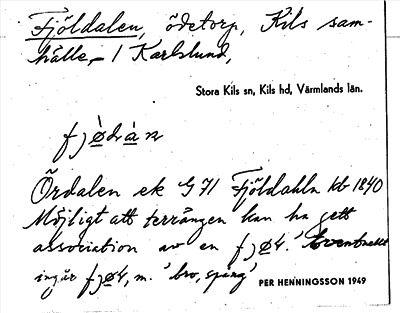 Fjöldalen, ödetorp, Kils sam-
hälle, / Karlslund,
Stora Kils sn, Kils hd, Värmlands län.
Ördalen ek G 71 Fjöldahln kb 1840
Möjligt att terrängen kan ha gett
association av en fjøɫ. Eventuellt
ingår fjøɫ, m. 'bro, spång'
PER HENNINGSSON 1949